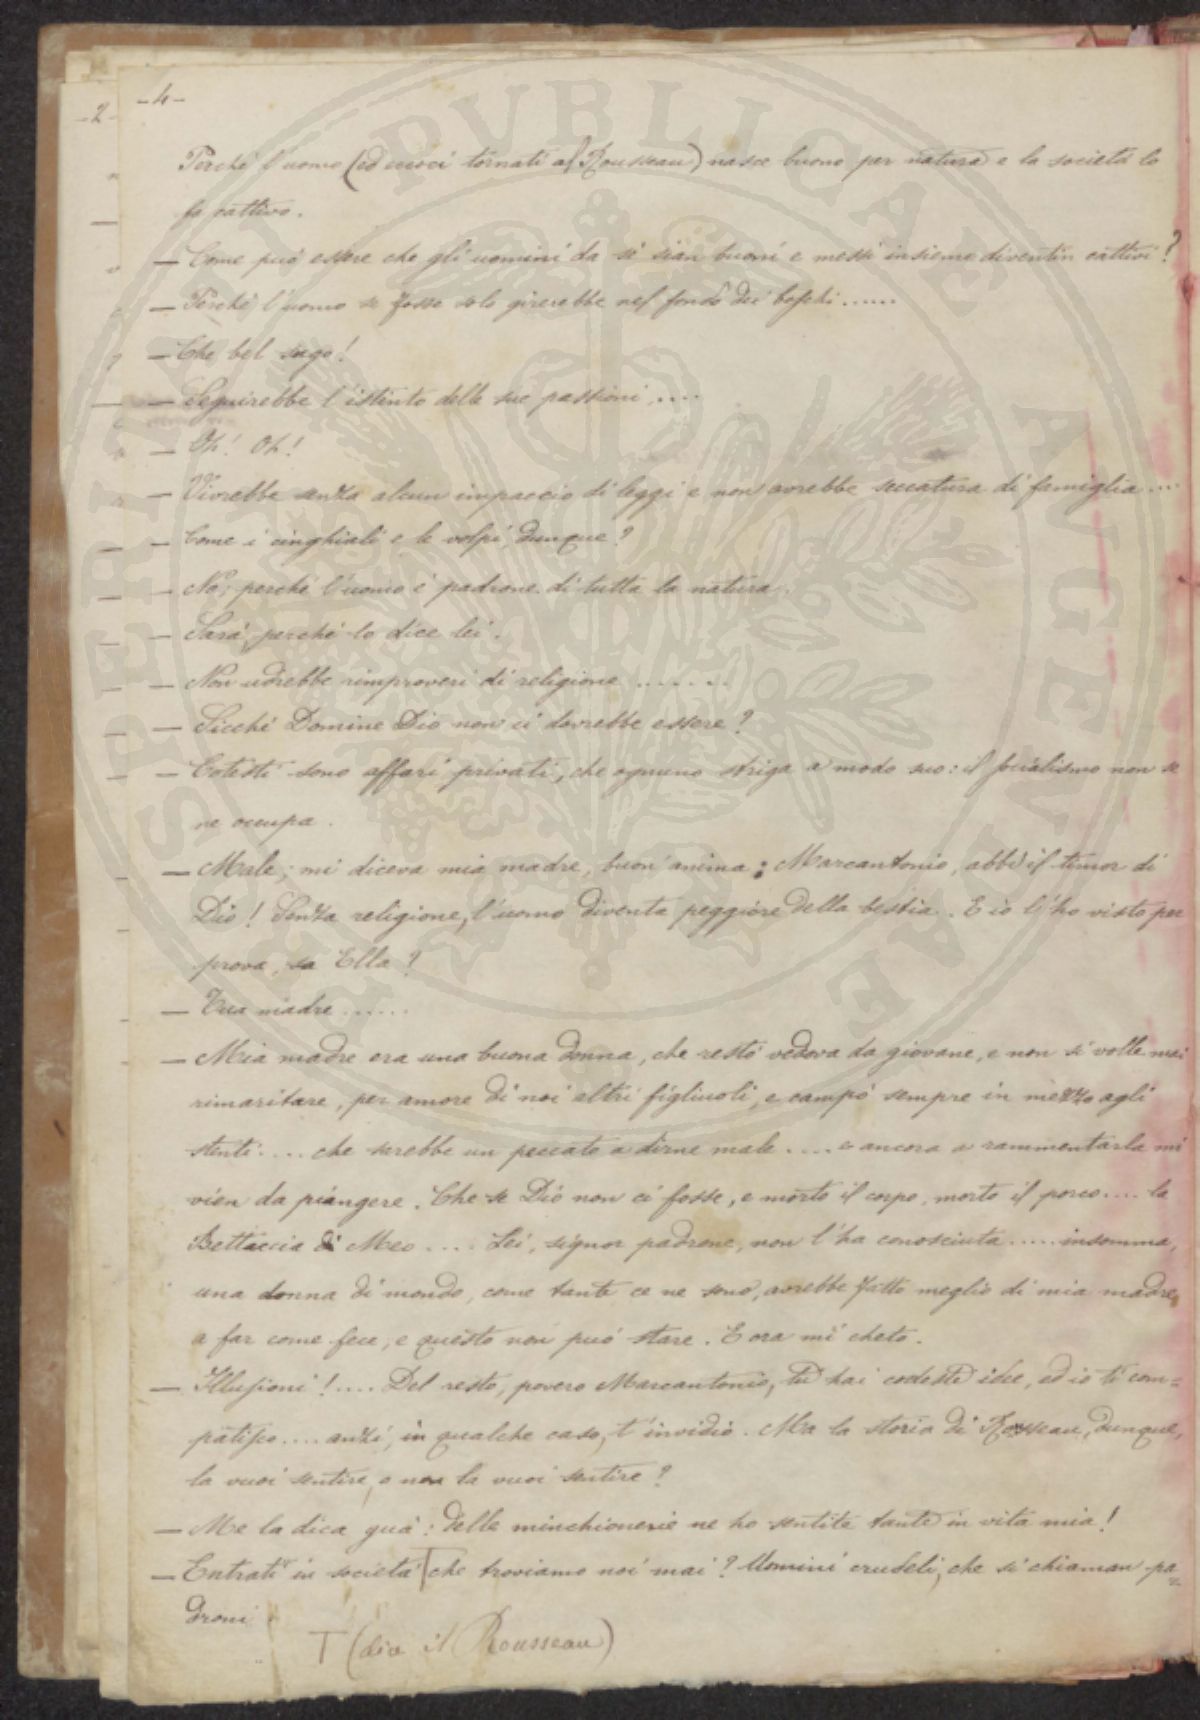 -2-
-4-
Perchè l'uomo (ed eccoci tornati al Rousseau) nasce buono per natura e la società lo
fa cattivo.
— Come può essere che gli uomini da sè sian buoni e messi insieme diventin cattivi?
— Perchè l'uomo se fosse solo girerebbe nel fondo dei boschi......
— Che bel sugo!
— Seguirebbe l'istinto delle sue passioni.....
— Oh! Oh!
— Vivrebbe senza alcun impaccio di leggi e non avrebbe seccatura di famiglia....
— Come i cinghiali e le volpi, dunque?
— No; perchè l'uomo è padrone di tutta la natura.
— Sarà, perchè lo dice lei.
— Non udrebbe rimproveri di religione .......
— Sicchè Domine Dio non ci dovrebbe essere?
— Cotesti sono affari privati, che ognuno striga a modo suo: il socialismo non se
ne occupa.
— Male; mi diceva mia madre, buon'anima: Marcantonio, abbi il timor di
Dio! Senza religione, l'uomo diventa peggiore della bestia. E io l'ho visto per
prova, sa Ella?
— Tua madre ......
— Mia madre era una buona donna, che restò vedova da giovane, e non si volle mai
rimaritare, per amore di noi altri figliuoli, e campò sempre in mezzo agli
stenti.... che sarebbe un peccato a dirne male.... e ancora a rammentarla mi
vien da piangere. Che se Dio non ci fosse, e morto il corpo, morto il porco.... la
Bettaccia di Meo .... Lei, signor padrone, non l'ha conosciuta..... insomma,
una donna di mondo, come tante ce ne sono, avrebbe fatto meglio di mia madre,
a far come fece; e questo non può stare. E ora mi cheto.
— Illusioni!.... Del resto, povero Marcantonio, tu hai codeste idee, ed io ti com=
patisco.... anzi, in qualche caso, t'invidio. Ma la storia di Rousseau, dunque,
la vuoi sentire, o non la vuoi sentire?
— Me la dica quà: delle minchionerie ne ho sentite tante in vita mia!
— Entrati in società T che troviamo noi mai? Uomini crudeli, che si chiaman pa=
droni
T (dice il Rousseau)